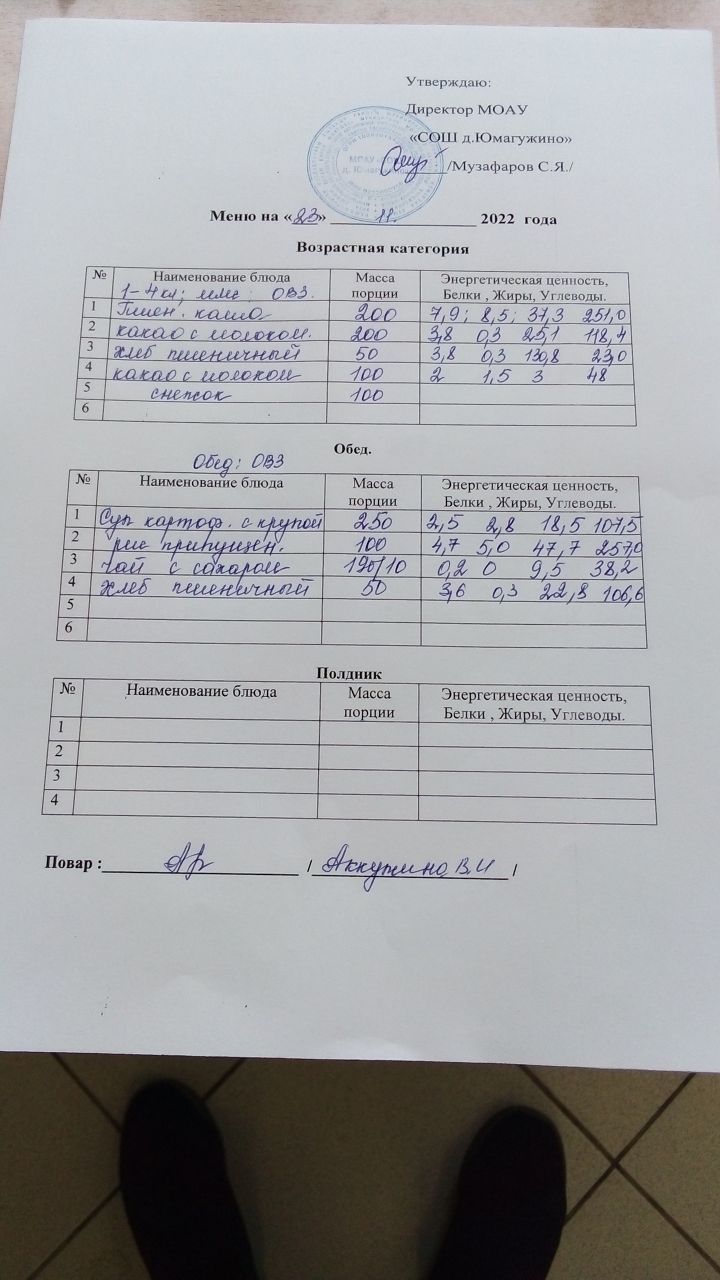 Утверждаю:
Директор МОАУ
«СОШ д.Юмагужино»
/Музафаров С.Я./
Меню на «23» 11. 2022 года
Возрастная категория
№ Наименование блюда Масса порции Энергетическая ценность, Белки , Жиры, Углеводы.
1-4 кл; ОВЗ.
1 Пшен. каша 200 7,9; 8,5; 37,3 251,0
2 какао с молоком. 200 3,8 0,3 25,1 118,4
3 хлеб пшеничный 50 3,8 0,3 130,8 23,0
4 какао с молоком 100 2 1,5 3 48
5 снежок 100
6
Обед.
Обед: ОВЗ
№ Наименование блюда Масса порции Энергетическая ценность, Белки , Жиры, Углеводы.
1 Суп картоф. с крупой 250 2,5 2,8 18,5 107,5
2 рис припущен. 100 4,7 5,0 47,7 257,0
3 чай с сахаром 190/10 0,2 0 9,5 38,2
4 хлеб пшеничный 50 3,6 0,3 22,8 106,6
5
6
Полдник
№ Наименование блюда Масса порции Энергетическая ценность, Белки , Жиры, Углеводы.
1
2
3
4
Повар : / В.И /